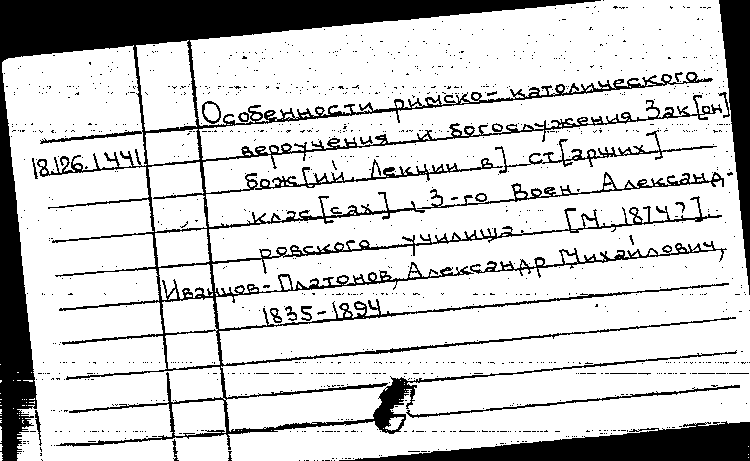 Особенности римско-католического
18.126.1.441. вероучения и богослужения. Зак[он]
бож[ий. Лекции в] ст[арших]
клас[сах] 3-го Воен. Александ-
ровского училища. [М., 1874?].
Иванцов-Платонов, Александр Михайлович,
1835-1894.